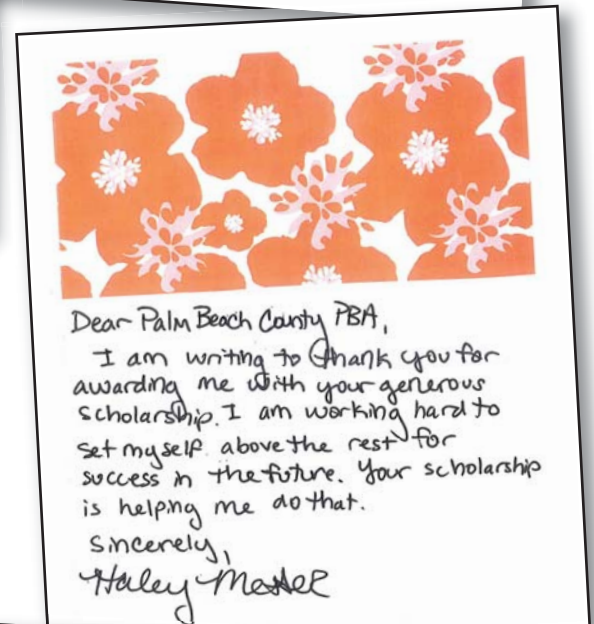 Dear Palm Beach County PBA,
I am writing to thank you for
awarding me with your generous
scholarship. I am working hard to
set myself above the rest for
success in the future. Your scholarship
is helping me do that.
Sincerely,
Haley